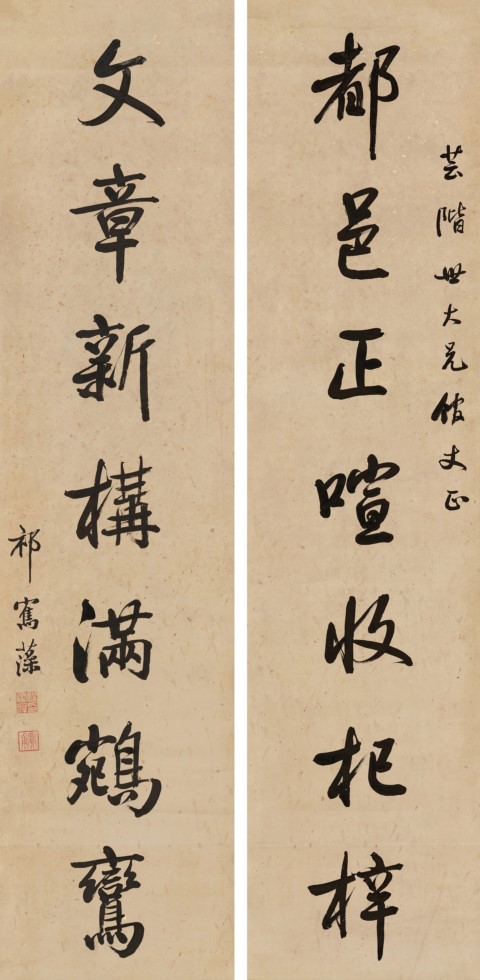 芸階世大兄館丈正
都邑正喧收杞梓
文章新構滿鵷鸞
祁寯藻